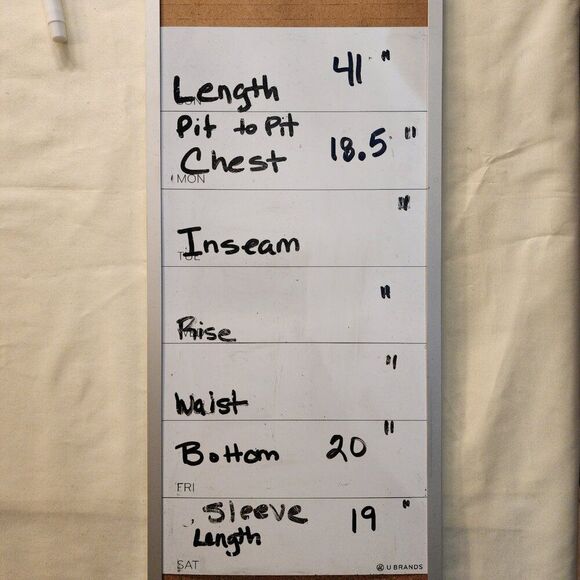 Length 41 "
Pit to Pit
Chest 18.5 "
MON
Inseam "
Rise "
Waist "
Bottom 20 "
FRI
Sleeve 19 "
Length
SAT U BRANDS